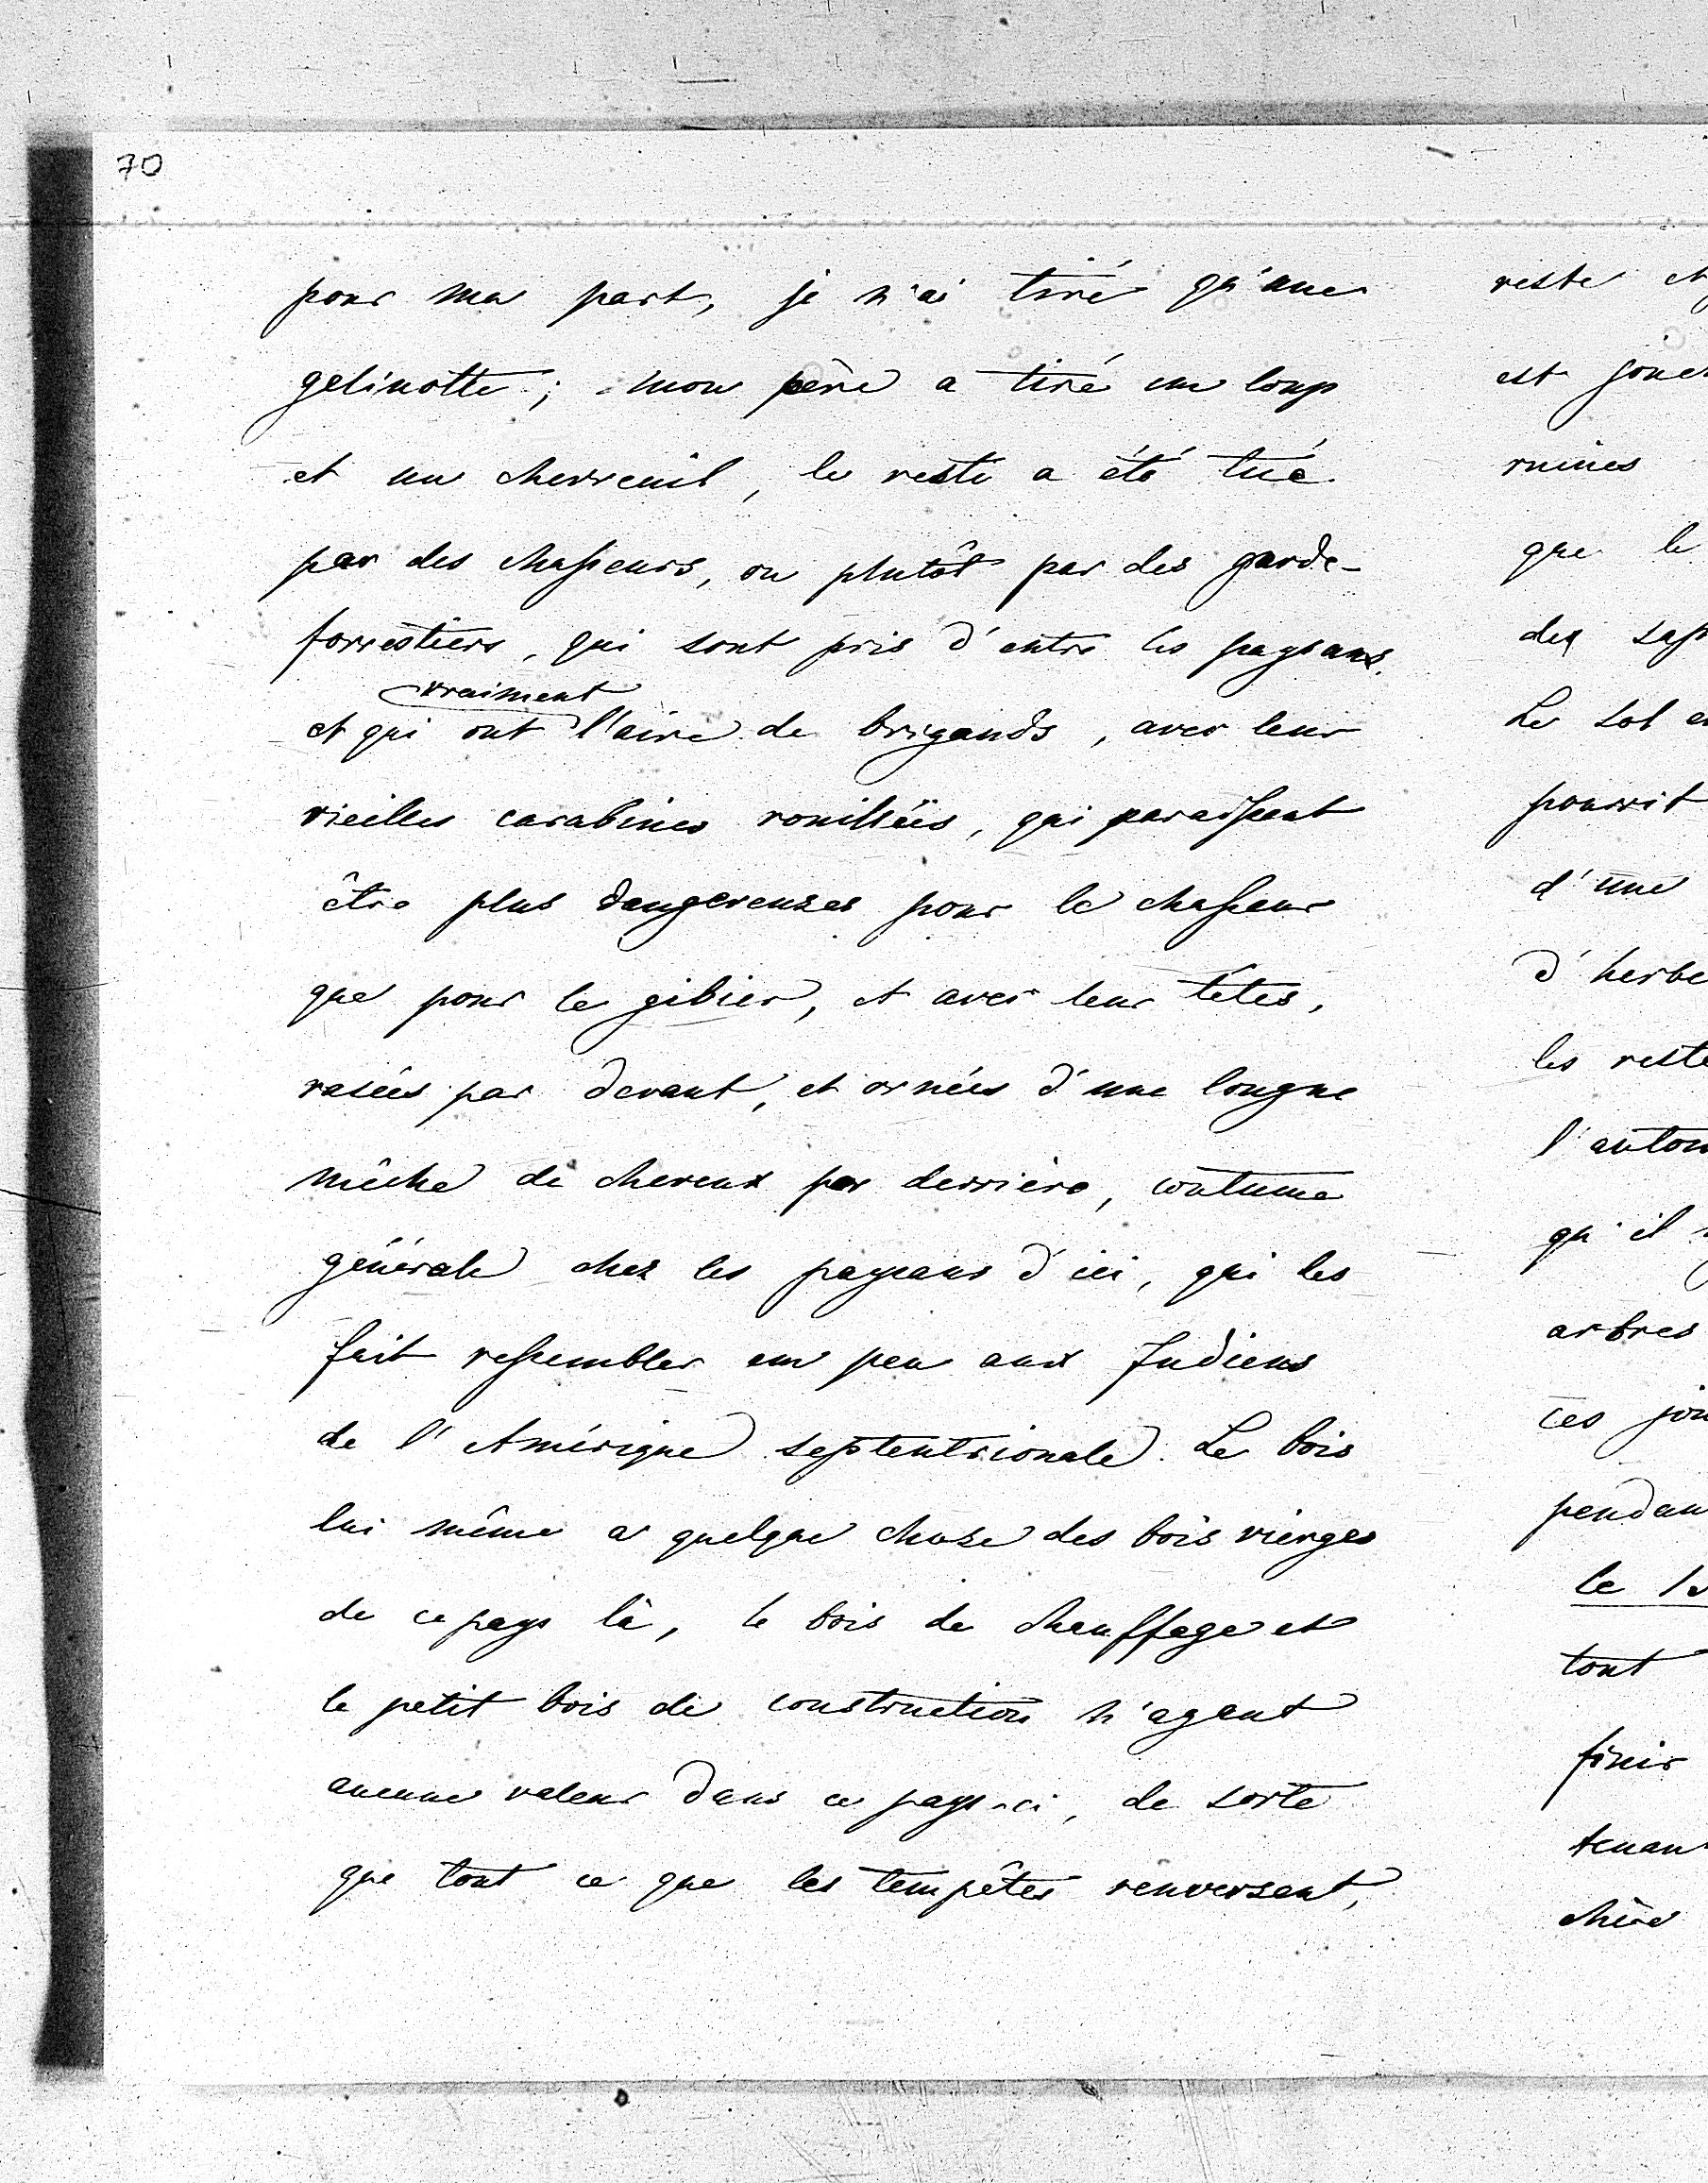 70
pour ma part, je n'ai tiré qu'une
gelinotte ; mon père a tiré un loup
et un chevreuil, le reste a été tué
par des chasseurs, ou plutôt par des garde-
forrestiers, qui sont pris d'entre les paysans.
vraiment
et qui ont l'aire de brigands, avec leur
vieilles carabines rouillées, qui paraissent
être plus dangereuses pour le chasseur
que pour le gibier, et avec leur têtes,
rasées par devant, et ornées d'une longue
mêche de cheveux par derrière, coutume
générale chez les paysans d'ici, qui les
fait ressembler un peu aux Indiens
de l'Amérique septentrionale. Le bois
lui même a quelque chose des bois vierges
de ce pays là, le bois de chauffage et
le petit bois de construction n'ayant
aucune valeur dans ce pays-ci, de sorte
que tout ce que les tempêtes renversent,
reste
est
ruines
que le
des
Le sol
pourrit
d'une
d'herbe
les reste
l'auton
qu'il
arbres
ces jou
pendan
le 15
tout
finir
tenan
chère